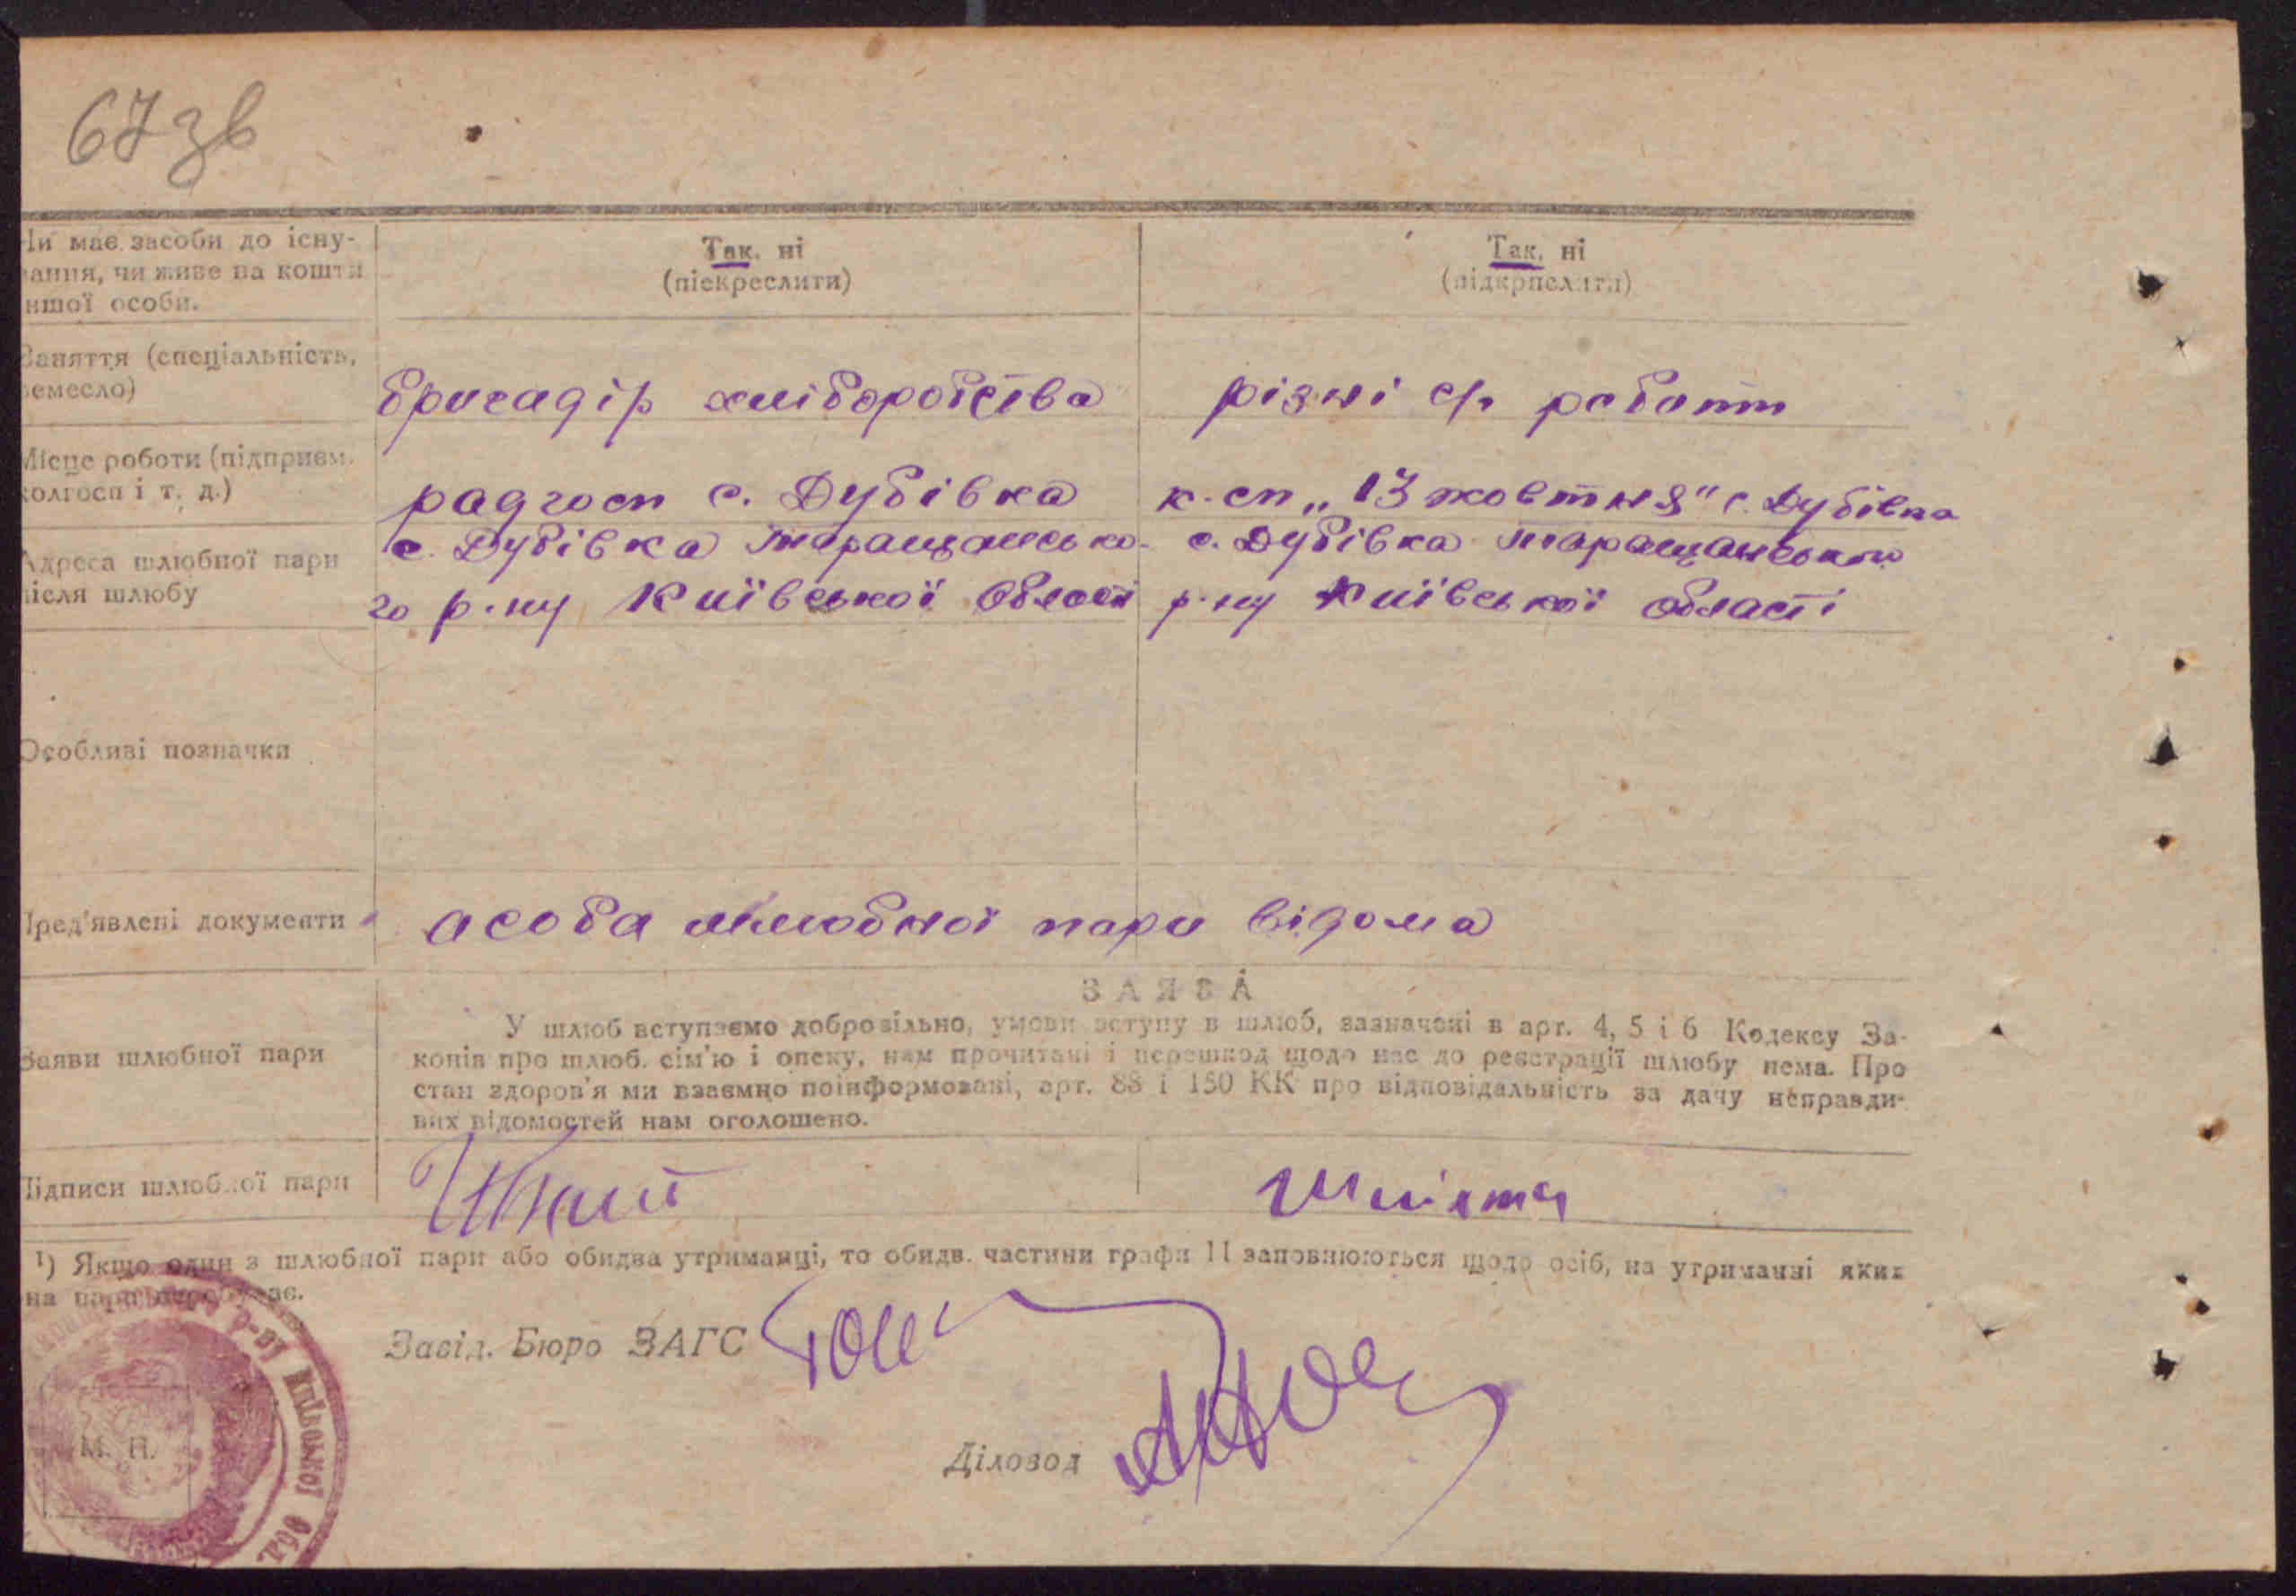 67зв
Чи має засоби до існу-
вання, чи живе на кошти
іншої особи.
Так, ні
(піекреслити)
Так, ні
(підкрпслити)
Заняття (спеціальність,
ремесло)
бригадір хліборобства
різні с/г работи
Місце роботи (підприєм.
колгосп і т. д.)
радгосп с. Дубівка
к-сп „13 жовтня" с. Дубівка
Адреса шлюбної пари
після шлюбу
с. Дубівка Таращансько-
го р-ну Київської області
с. Дубівка Таращанського
р-ну Київської області
Особливі позначки
Пред'явлені документи
асоба шлюбної пари відома
ЗАЯВА
Заяви шлюбної пари
У шлюб вступаємо добровільно, умови вступу в шлюб, зазначені в арт. 4, 5 і 6 Кодексу За-
конів про шлюб. сім'ю і опеку, нам прочитані і перешкод щодо нас до реєстрації шлюбу нема. Про
стан здоров'я ми взаємно поінформовані, арт. 88 і 150 КК про відповідальність за дачу неправди-
вих відомостей нам оголошено.
Підписи шлюбної пари
¹) Якщо один з шлюбної пари або обидва утриманці, то обидв. частини графи 11 заповнюються щодо осіб, на утриманні яких
на пара перебуває.
Завід. Бюро ЗАГС
Діловод
М. П.
р-ну Київської Обл.